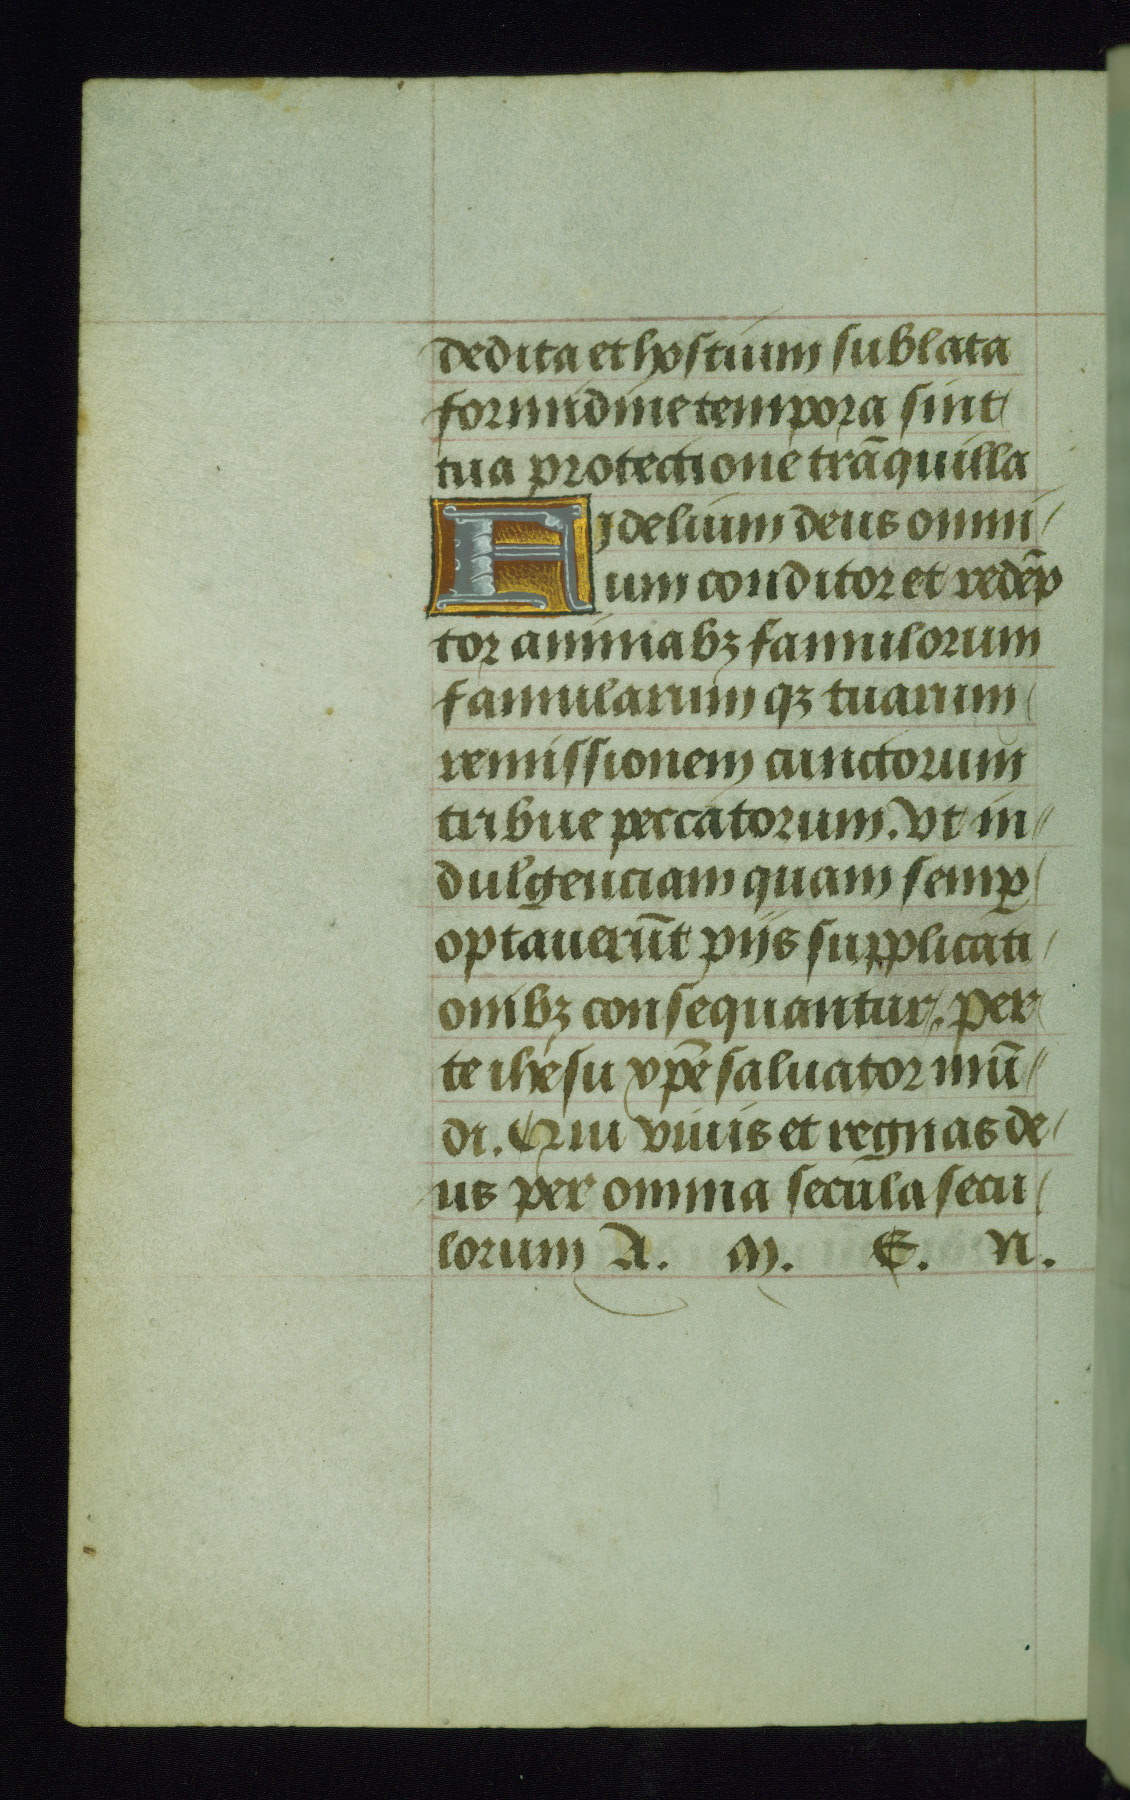 dedita et hostium sublata
formidine tempora sint
tua protectione trāquilla
Fjdelium deus omni
um conditor et redēp
tor animabꝫ famulorum
famularum qꝫ tuarum
remissionem cunctorum
tribue peccatorum. Vt in
dulgenciam quam semꝑ
optauerūt piis supplicati
onibꝫ consequantur. Per
te ihesu xp̄e saluator mū
di. Qui viuis et regnas de
us per omnia secula secu
lorum A. M. E. N.